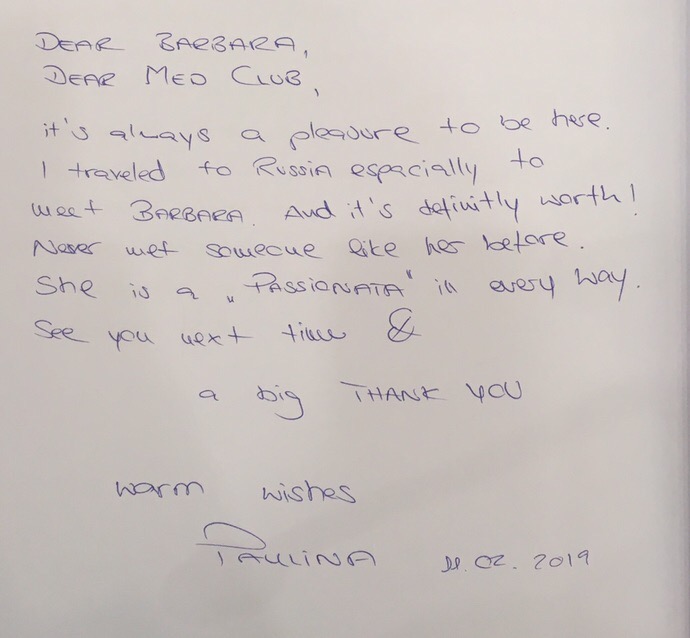 DEAR BARBARA,
DEAR MED CLUB,
it's always a pleasure to be here.
I traveled to RUSSIA espacially to
meet BARBARA. And it's definitly worth!
Never met someone like her before.
She is a „PASSIONATA" in every way.
See you next time &
a big THANK YOU
warm wishes
PAULINA .02.2019